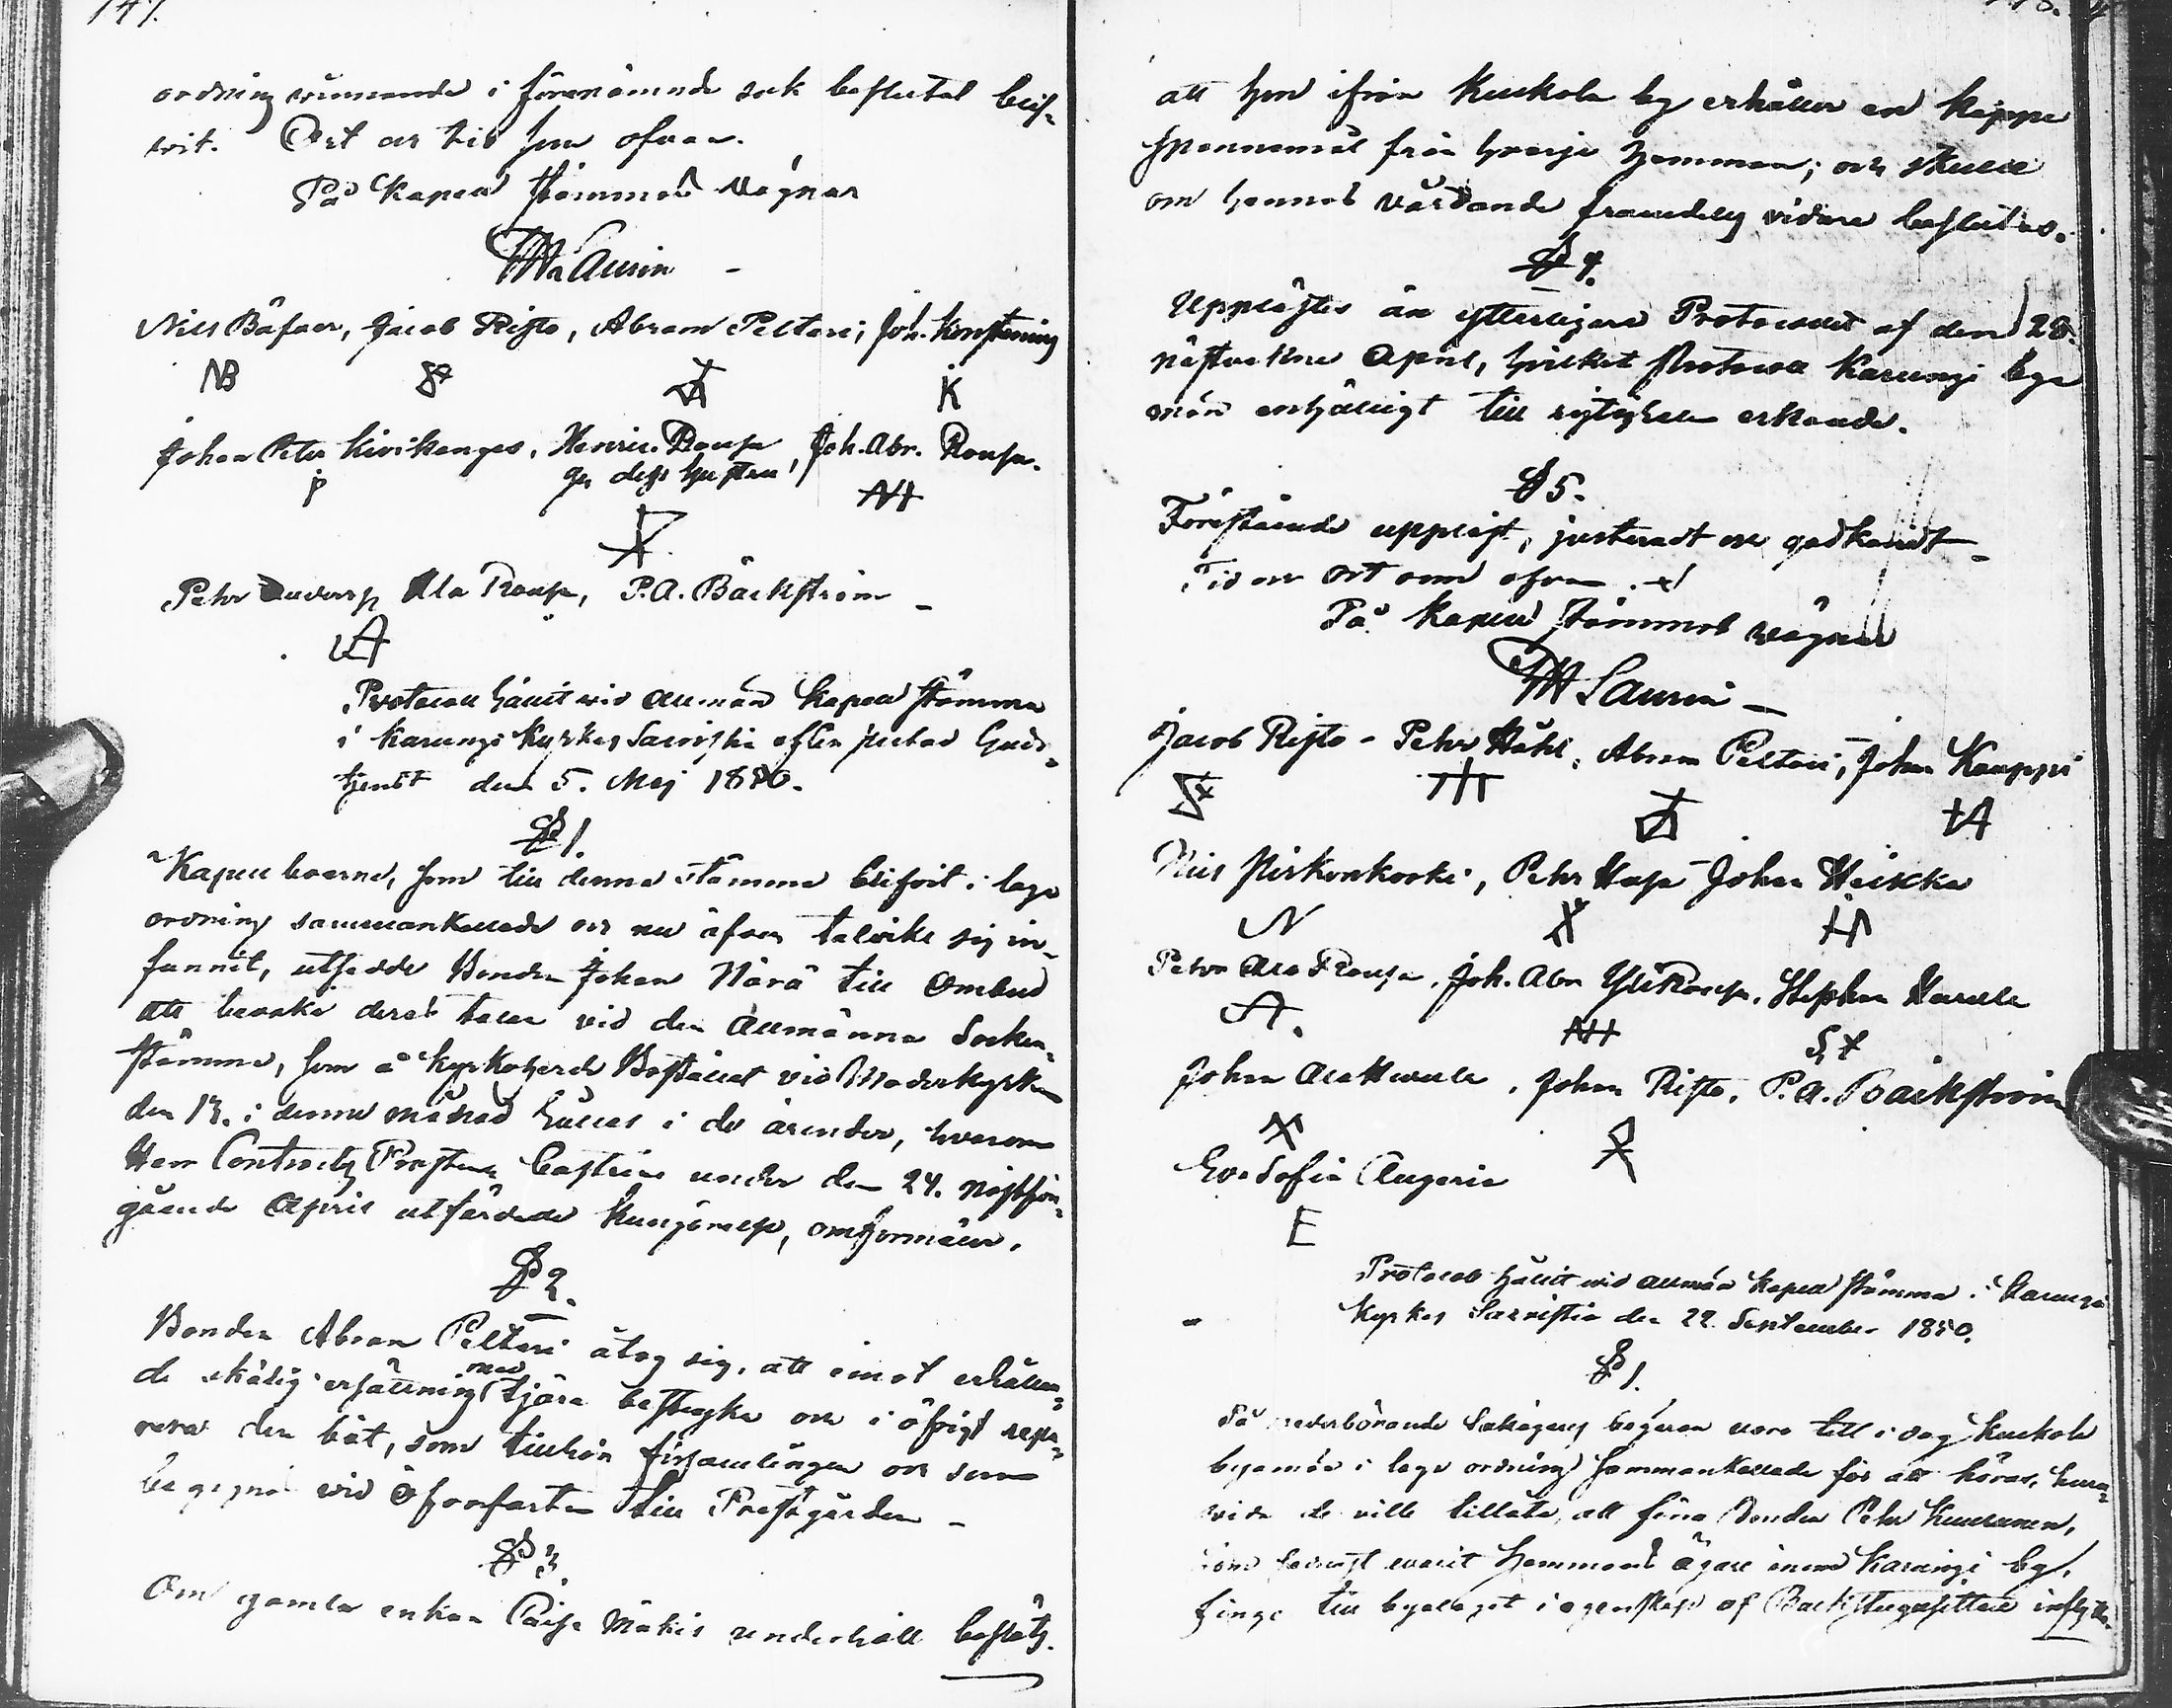 147.
ordning rummande i förenämnde sak beslutat blif-
vit. Ort och tid som ofvan.
På Kapell stämmans vägnar
Laurin
Nils Bäfver, Jacob Rijto, Abram Peltari, Joh.
NB K
Johan Peter Kivikangas, Henric Roupa, Joh. Abr. Roupa.
och dess hustru
P
Pehr Ala Roupa, P. A. Bäckström
A
Protocoll hållit vid allmän Kapell stämma
i Karungi Kyrkas Sacristia efter slutad Guds-
tjenst den 5. Maj 1850.
§ 1.
Kapellboerne, som till denna stämma blifvit i laga
ordning sammankallade och nu äfven talrikt sig in-
funnit, utsedde Bonden Johan Närä till Ombud
att bevaka deras talan vid den allmänna Socken-
stämma, som å Kyrkoherde Bostället vid Moderkyrkan
den 13. i denna månad hålles i de ärender, hvarom
Herr Contracts Prosten Castrén under den 24. nästför-
gående April utfärdade Kungörelse, omförmäler.
§ 2.
Bonden Abram Peltari åtog sig, att emot erhållan-
de skälig ersättning med tjära bestryka och i öfrigt repa-
rera den båt, som tillhör församlingen och som
begagnas vid öfverfarten till Prestgården
§ 3.
Om gamla enkan Caisa Mäkis underhåll beslöts.
att hon ifrån Kuckola by erhåller en kappe
spannemål från hvarje hemman; och skulle
om hennes vårdande framdeles vidare beslutas.
§ 4.
Upplästes än ytterligare Protocollet af den 28
nästvekne April, hvilket Protocoll Karungi bya
män enhälligt till rigtigheten erkände.
§ 5.
Förestående uppläst, justeradt och godkändt
Tid och ort som ofvan.
På Kapell stämmans vägnar
Laurin
Jacob Rijto - Pehr Håhl, Abram Peltari, Johan Kauppi
Nils Pirkonkoski, Pehr Hasa Johan Heikka
N
Pehr Ala Roupa, Joh. Abr Yli Roupa, Stephan
A.
Johan Ala, Johan Rijto, P. A. Bäckström
Eva Sofia
E
Protocoll hållit vid allmän Kapell stämma i Karungi
Kyrkas Sacristia den 22 September 1850.
§ 1.
På vederbörande Sakägares begäran voro till i dag Kuckola
byamän i laga ordning sammankallade för att höras, huru-
vida de ville tillåta, att förra Bonden Pehr,
som varit hemmans ägare inom Karungi by,
finge till byalaget i egenskap af Backstugusittare inflytta